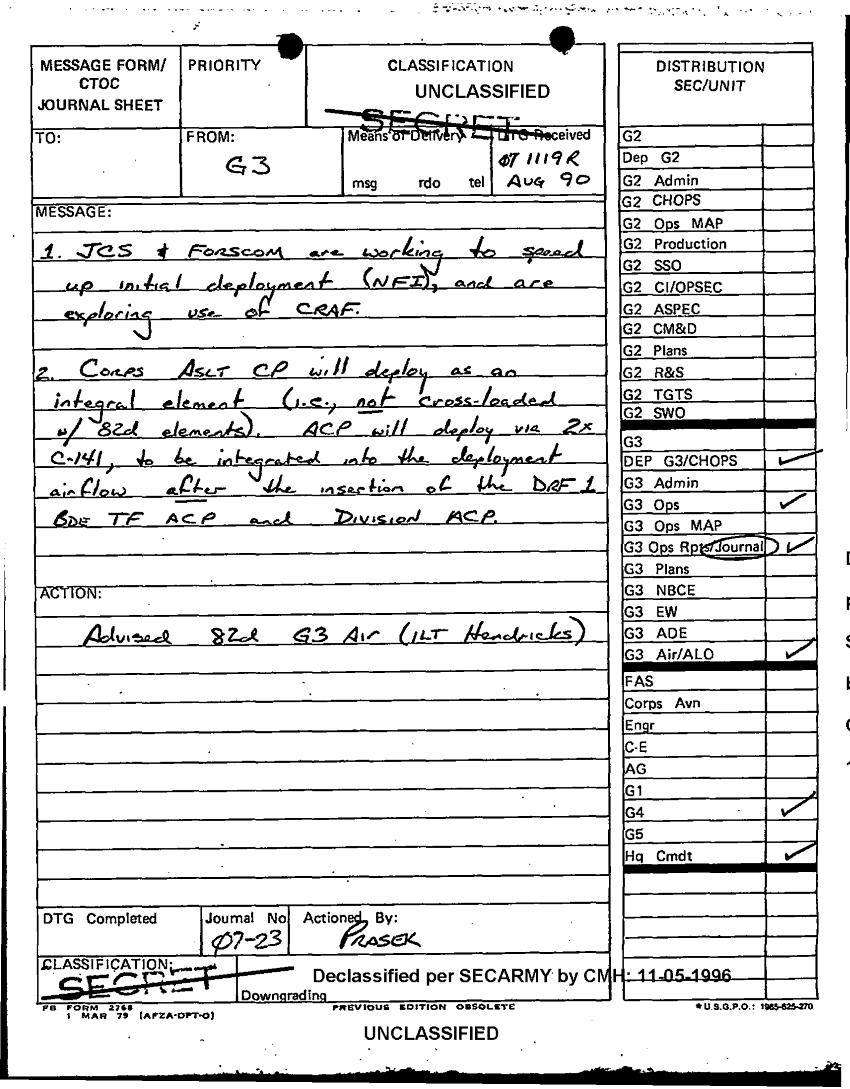 MESSAGE FORM/
CTOC
JOURNAL SHEET
PRIORITY
CLASSIFICATION
UNCLASSIFIED
SECRET
TO:
FROM:
G3
Means of Delivery
msg rdo tel
DTG Received
07 1119R
AUG 90
MESSAGE:
1. JCS & FORSCOM are working to speed
up initial deployment (NFI), and are
exploring use of CRAF.
2. CORPS ASLT CP will deploy as an
integral element (i.e., not cross-loaded
w/ 82d elements). ACP will deploy via 2x
C-141, to be integrated into the deployment
airflow after the insertion of the DRF 1
BDE TF ACP and DIVISION ACP.
ACTION:
Advised 82d G3 Air (1LT Hendricks)
DTG Completed
Journal No
07-23
Actioned By:
PRASEK
CLASSIFICATION:
SECRET
Declassified per SECARMY by CMH: 11-05-1996
Downgrading
FB FORM 2768
1 MAR 79 (AFZA-DPT-O)
PREVIOUS EDITION OBSOLETE
UNCLASSIFIED
DISTRIBUTION
SEC/UNIT
G2
Dep G2
G2 Admin
G2 CHOPS
G2 Ops MAP
G2 Production
G2 SSO
G2 CI/OPSEC
G2 ASPEC
G2 CM&D
G2 Plans
G2 R&S
G2 TGTS
G2 SWO
G3
DEP G3/CHOPS
G3 Admin
G3 Ops
G3 Ops MAP
G3 Ops Rpts/Journal
G3 Plans
G3 NBCE
G3 EW
G3 ADE
G3 Air/ALO
FAS
Corps Avn
Engr
C-E
AG
G1
G4
G5
Hq Cmdt
*U.S.G.P.O.: 1985-625-270